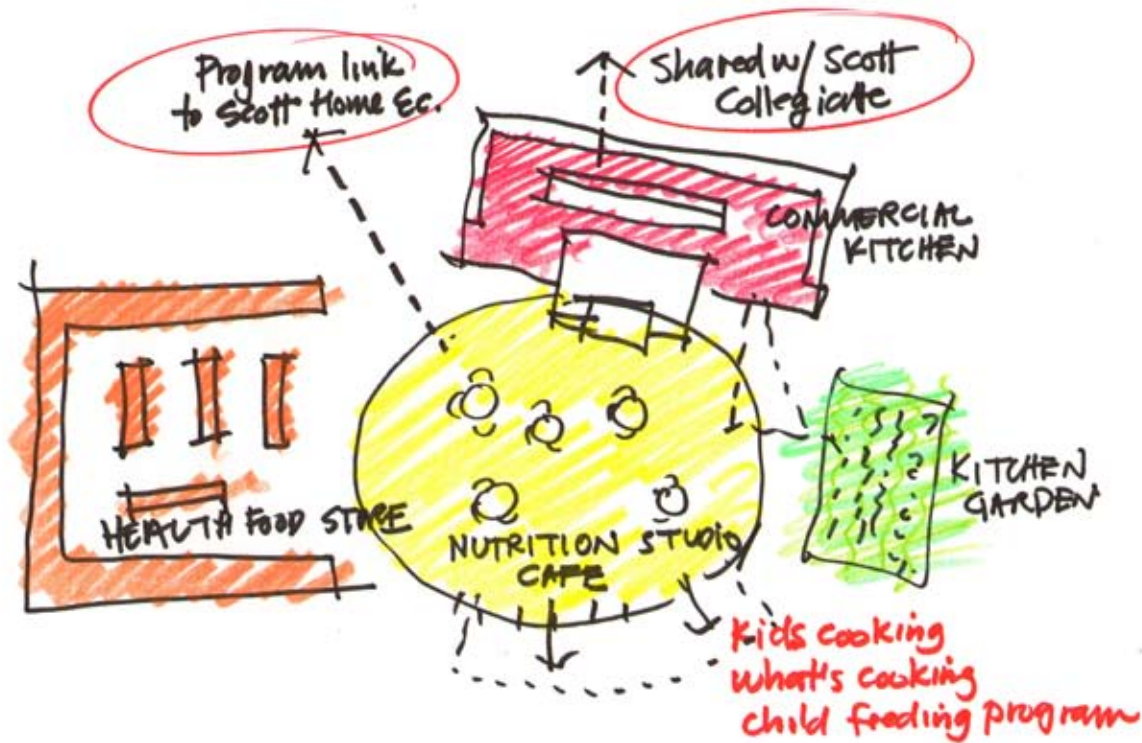 Program link
to Scott Home Ec.
Shared w/ Scott
Collegiate
COMMERCIAL
KITCHEN
HEALTH FOOD STORE
NUTRITION STUDIO
CAFE
KITCHEN
GARDEN
Kids cooking
what's cooking
child feeding program